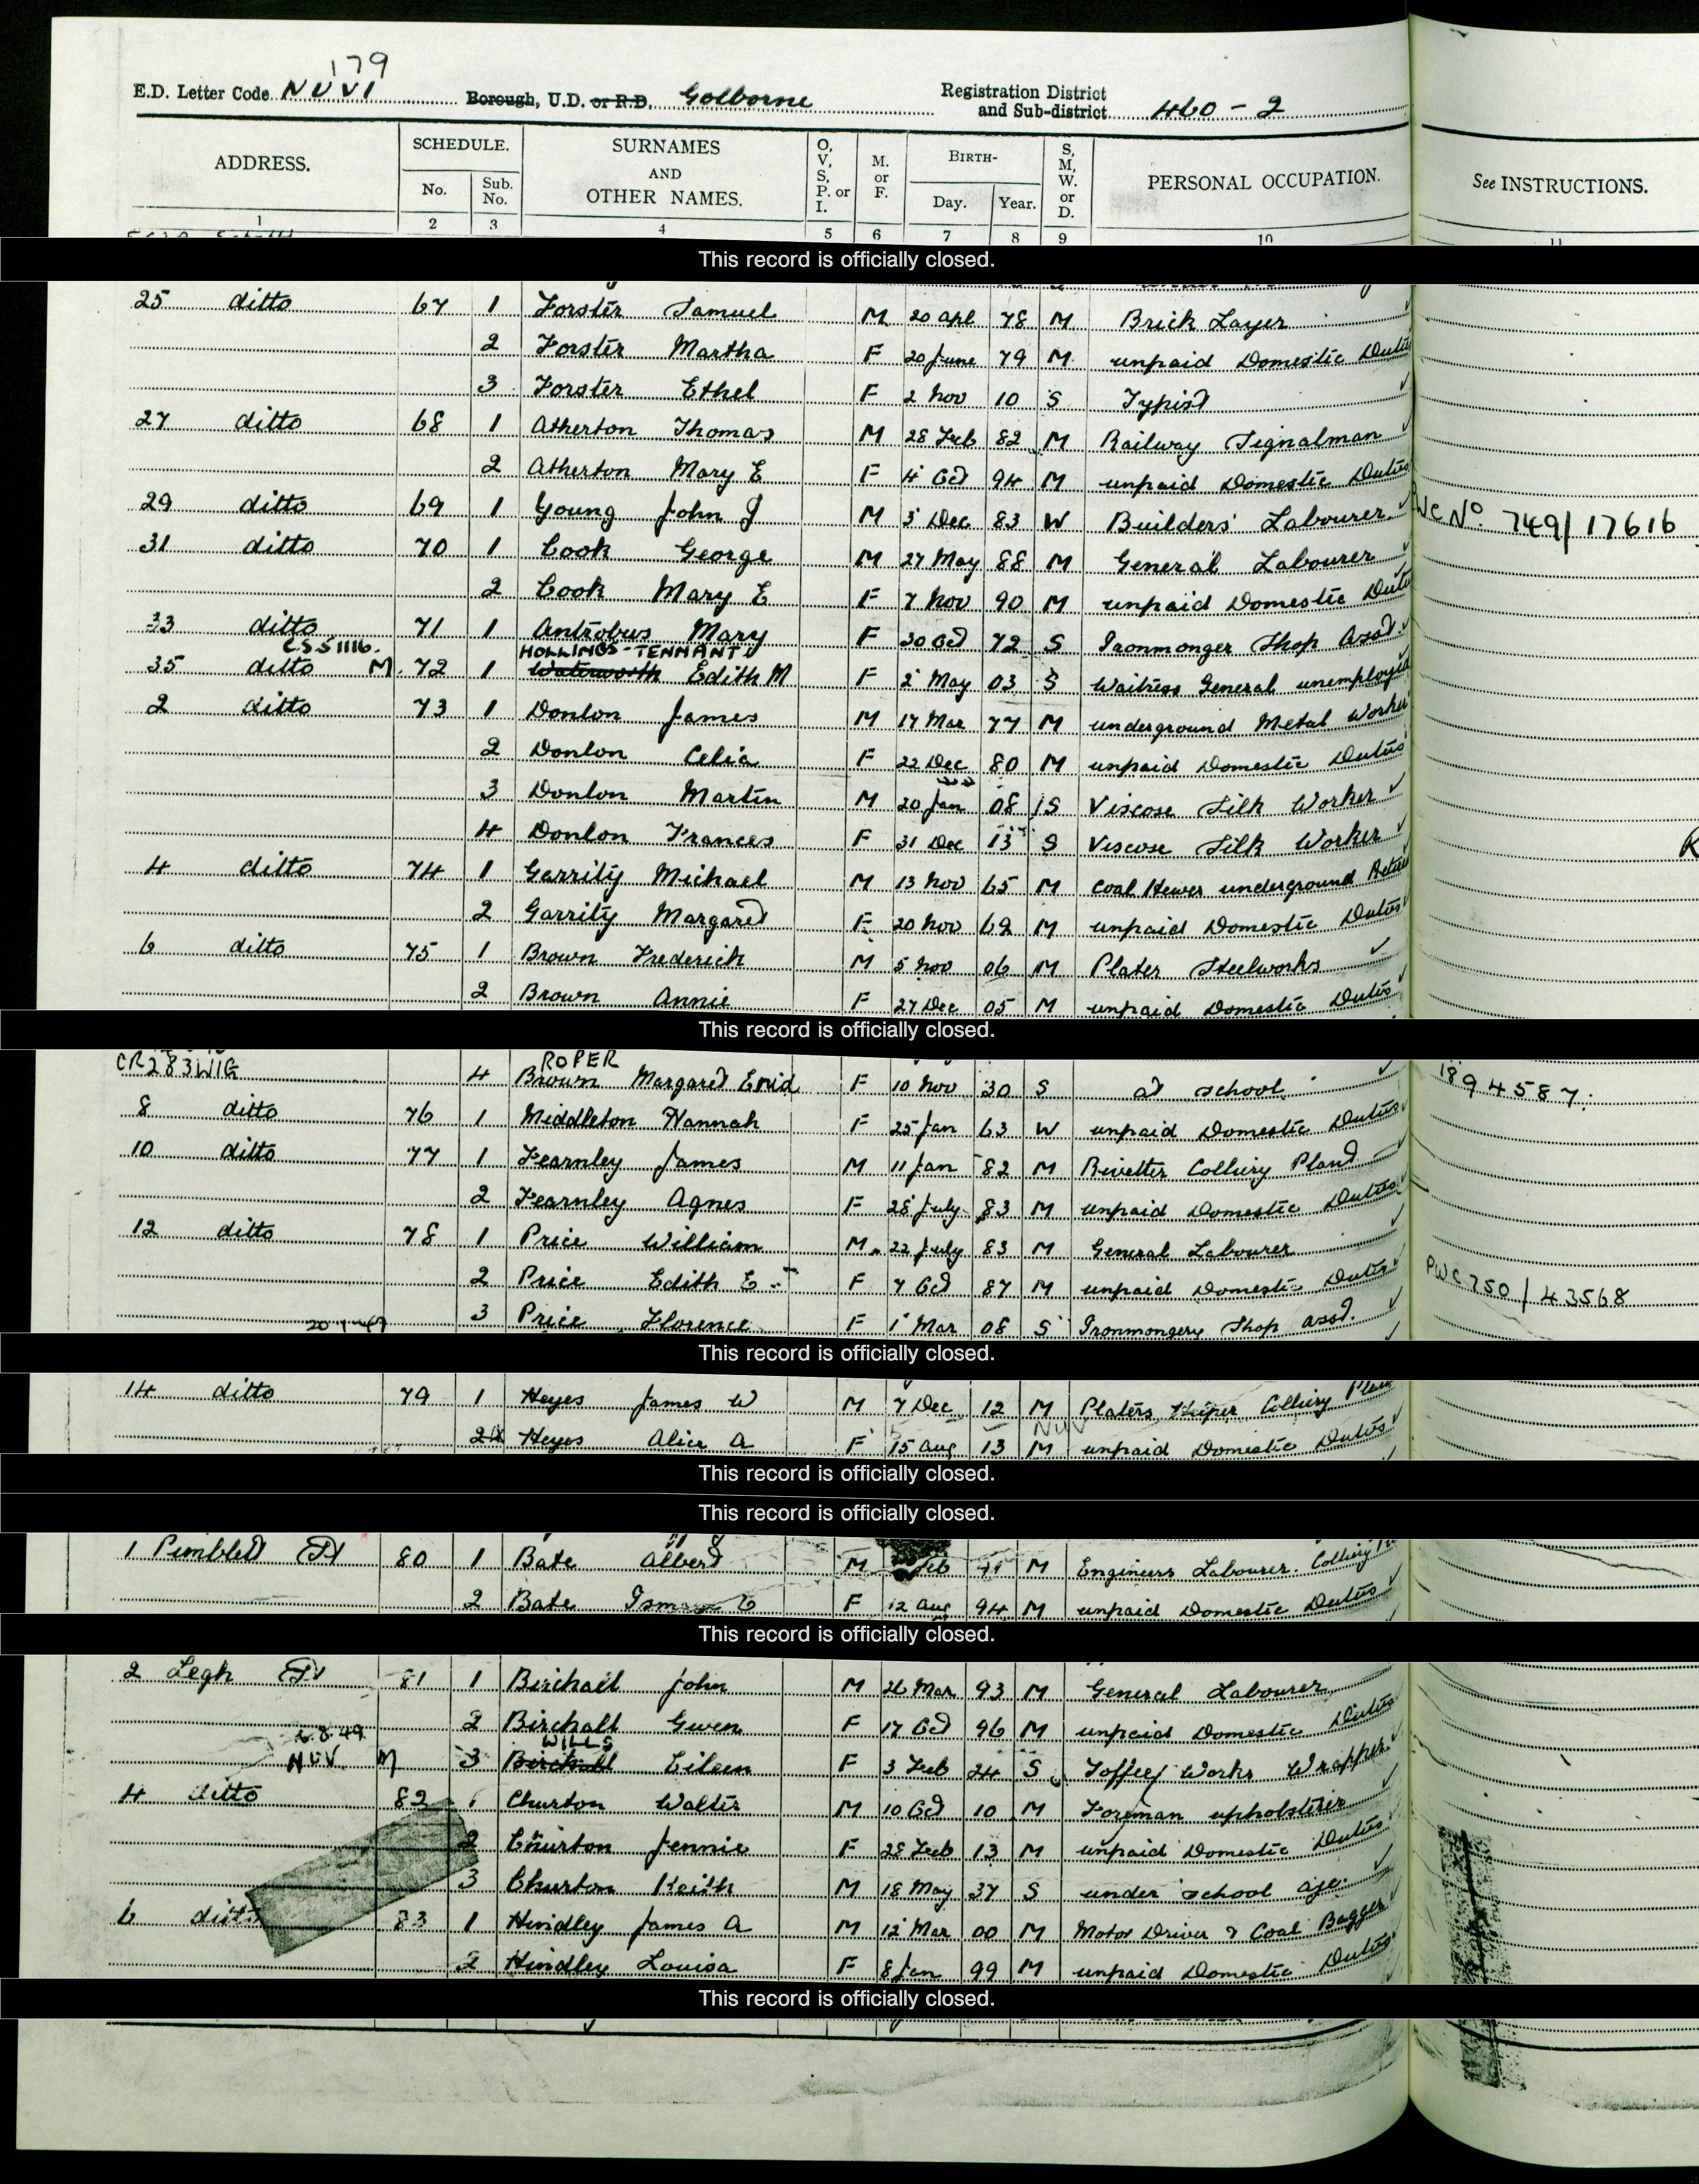 179
E.D. Letter Code NUVI Borough, U.D. or R.D. Golborne Registration District and Sub-district 460 - 2
ADDRESS. SCHEDULE. No. Sub. No. SURNAMES AND OTHER NAMES. O, V, S, P. or I. M. or F. BIRTH- Day. Year. S, M, W. or D. PERSONAL OCCUPATION. See INSTRUCTIONS.
1 2 3 4 5 6 7 8 9 10 11
This record is officially closed.
25 ditto 67 1 Forster Samuel M 20 apl 78 M Brick Layer
2 Forster Martha F 20 June 79 M unpaid Domestic Duties
3 Forster Ethel F 2 Nov 10 S Typist
27 ditto 68 1 Atherton Thomas M 28 Feb 82 M Railway Signalman
2 Atherton Mary E F 4 Oct 94 M unpaid Domestic Duties
29 ditto 69 1 Young John J M 3 Dec 83 W Builders' Labourer WC No. 749/17616
31 ditto 70 1 Cook George M 27 May 88 M General Labourer
2 Cook Mary E F 7 Nov 90 M unpaid Domestic Duties
33 ditto 71 1 Antrobus Mary F 20 Oct 72 S Ironmonger Shop Asst.
CSS1116. HOLLINGS-TENNANT
35 ditto M. 72 1 Waterworth Edith M F 2 May 03 S Waitress General unemployed
2 ditto 73 1 Donlon James M 17 Mar 77 M underground Metal Worker
2 Donlon Celia F 22 Dec 80 M unpaid Domestic Duties
3 Donlon Martin M 20 Jan 08 S Viscose Silk Worker
4 Donlon Frances F 31 Dec 13 S Viscose Silk Worker
R
4 ditto 74 1 Garrity Michael M 13 Nov 65 M Coal Hewer underground
2 Garrity Margaret F 20 Nov 69 M unpaid Domestic Duties
6 ditto 75 1 Brown Frederick M 5 Nov 06 M Plater Steelworks
2 Brown Annie F 27 Dec 05 M unpaid Domestic Duties
This record is officially closed.
CR283WIG ROPER
4 Brown Margaret Enid F 10 Nov 30 S at school 1894587.
8 ditto 76 1 Middleton Hannah F 25 Jan 63 W unpaid Domestic Duties
10 ditto 77 1 Fearnley James M 11 Jan 82 M Rivetter Colliery Plant
2 Fearnley Agnes F 28 July 83 M unpaid Domestic Duties
12 ditto 78 1 Price William M 22 July 83 M General Labourer
2 Price Edith E F 7 Oct 87 M unpaid Domestic Duties PWC750/43568
3 Price Florence F 1 Mar 08 S Ironmongery Shop asst.
This record is officially closed.
14 ditto 79 1 Heyes James W M 7 Dec 12 M Platers Helper Colliery Plant
NUV
2 Heyes Alice A F 15 Aug 13 M unpaid Domestic Duties
This record is officially closed.
This record is officially closed.
1 Pimblett St 80 1 Bate Albert M Feb 91 M Engineers Labourer. Colliery
2 Bate F 12 Aug 94 M unpaid Domestic Duties
This record is officially closed.
2 Legh St 81 1 Birchall John M 26 Mar 93 M General Labourer
2 Birchall Gwen F 17 Oct 96 M unpaid Domestic Duties
6.8.49 WILLS
NUV M 3 Birchall Eileen F 3 Feb 24 S Toffee Works Wrapper
4 ditto 82 1 Churton Walter M 10 Oct 10 M Foreman upholsterer
2 Churton Jennie F 28 Feb 13 M unpaid Domestic Duties
3 Churton Keith M 18 May 37 S under school age.
6 ditto 83 1 Hindley James A M 12 Mar 00 M Motor Driver & Coal Bagger
2 Hindley Louisa F 8 Jan 99 M unpaid Domestic Duties
This record is officially closed.